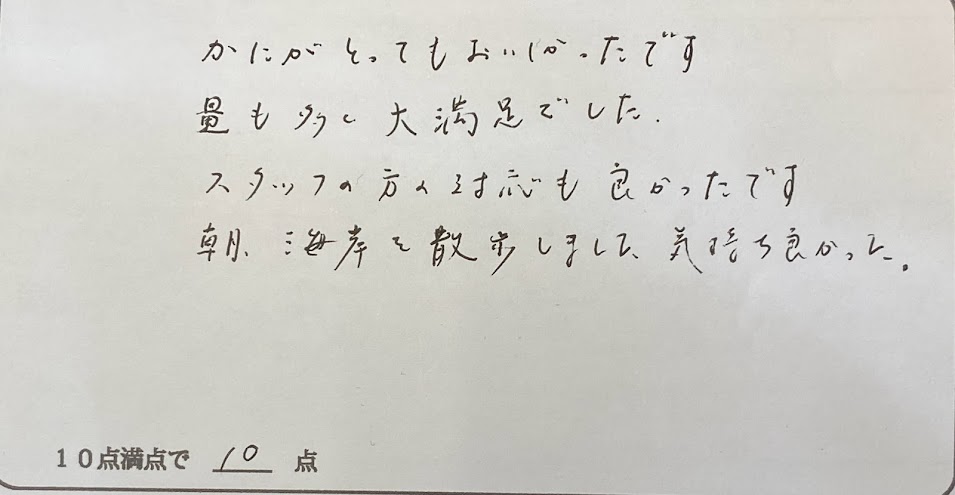 かにがとってもおいしかったです
量も多く大満足でした.
スタッフの方の対応も良かったです
朝、海岸を散歩しました、気持ち良かった。
10点満点で 10 点